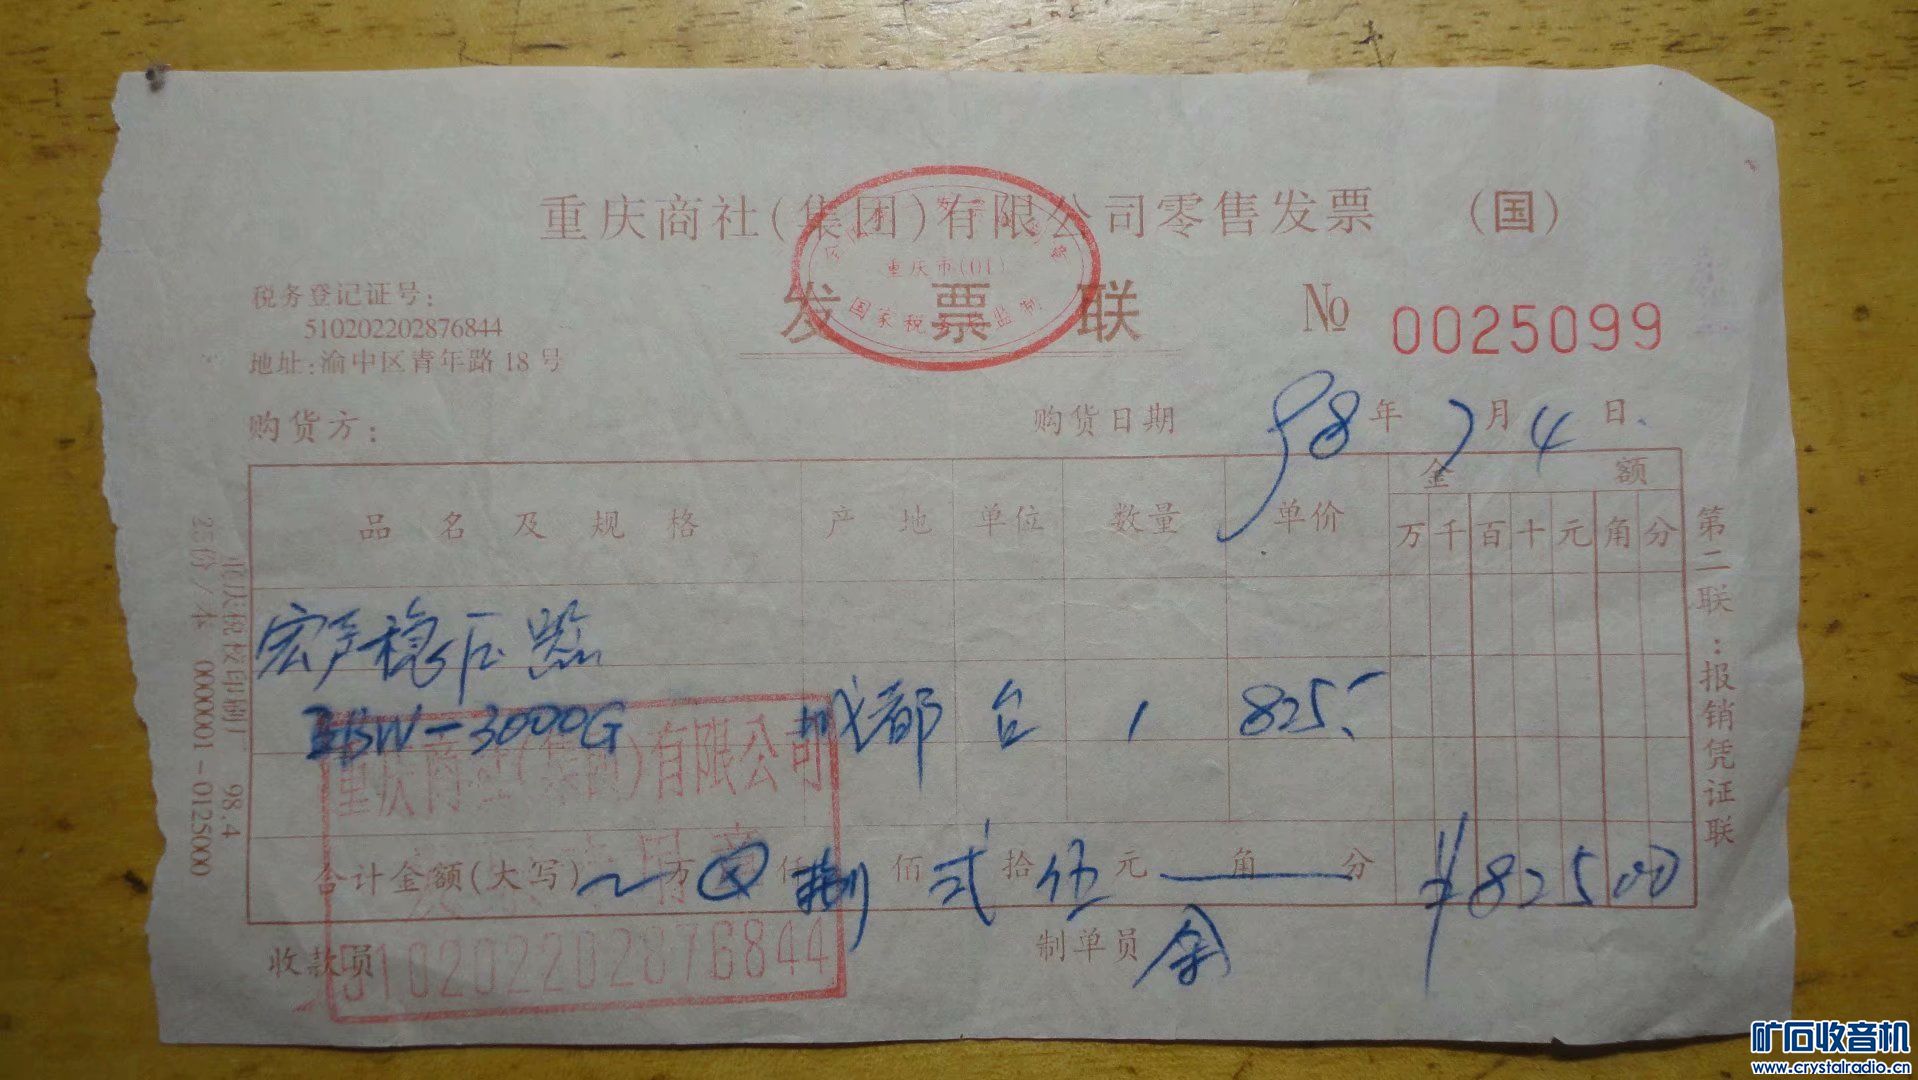 重庆商社(集团)有限公司零售发票 (国)
重庆市(01)
国家税务局监制
发票联
税务登记证号:
510202202876844
地址:渝中区青年路18号
№ 0025099
购货方:
购货日期 98年7月4日
品名及规格 产地 单位 数量 单价 金额
万 千 百 十 元 角 分
宏声稳压器
-3000G 成都 台 1 825.-
重庆商社(集团)有限公司
合计金额(大写) 万 仟 捌 佰 弍 拾 伍 元 角 分 ¥82500
510202202876844
收款员 制单员 余
第二联:报销凭证联
25份/本 0000001-0125000
印制厂 98.4
矿石收音机
www.crystalradio.cn